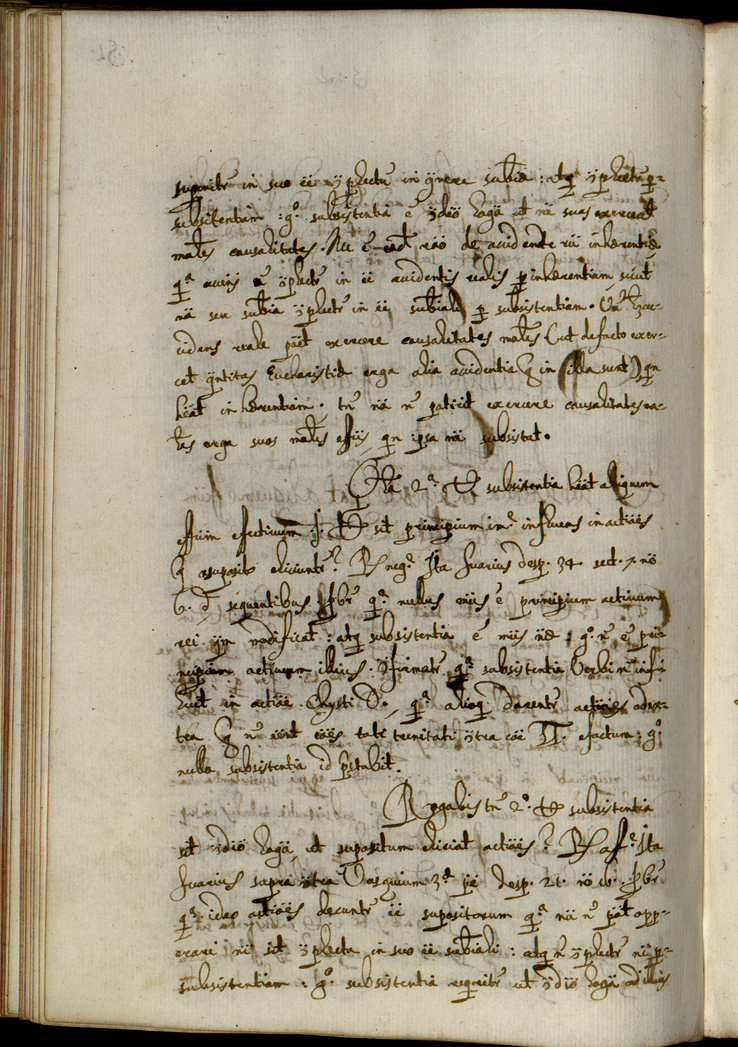 suponitr in suo eē ↄ̄plectū in gn̄ere subæ : atq ↄ̄pleetr p-
subsistentiam : gº. subsistentia ē ↄ̄diõ ut nā suas exerceat
mal̄es causalitates. Nē ē eadē rãõ de accidente rū inhærentiæ
qª accñs n̄ ↄ̄pletr in eē accidentis realis p inhærentiam, sicut
nā seu sub̄a ↄ̄pletr in eē sub̄iali p subsistentiam. ac-
cidens reale pōt exercere causalitates mal̄es (ut defacto exer-
cet q̄ntitas Eucharistiæ erga alia accidentia q in illa sunt) qn
hēat inhærentiam. tn̄ nā n̄ poterit exercere causalitates ma-
l̄es erga suos mal̄es eff̄us, qn ipsa nā subsistat.
2ª. subsistentia hēat aliquem
eff̄um efectivum .i. sit principium im̄. influens in actiões
q asuposito eliciuntr? R. negª. Ita Suarius desp. 34. sect. 7. nõ
6. sequentibus p̄br̄ qª nullus mūs ē principium activum
rei q̄m modificat : atq subsistentia ē mūs nāe : gº. n̄ ē prin-
cipium activum illius. ↄ̄firmatr qª subsistentia Verbi n̄ infl-
uit in actiões Chysti D., qª alioq darentr actiões ad ex-
tra q n̄ eēnt cões toti trinitati ↄ̄tra cõe TT. efactum : gº.
nulla subsistentia id p̄stabit.
Rogabis tn̄ 2º. subsistentia
sit ↄ̄diõ ut supositum eliciat actiões? R. affª. Ita
Suarius supra ↄ̄tra Vasquium 3ª pē desp. 21. nõ p̄br̄
qª ideo actiões dicuntr eē supositorum qª nā n̄ pōt opp-
erari ni sit ↄ̄pleta in suo eē sub̄iali : atq n̄ ↄ̄pletr ni p-
subsistentiam : gº. subsistentia requiritr ut ↄ̄diõ ad illas